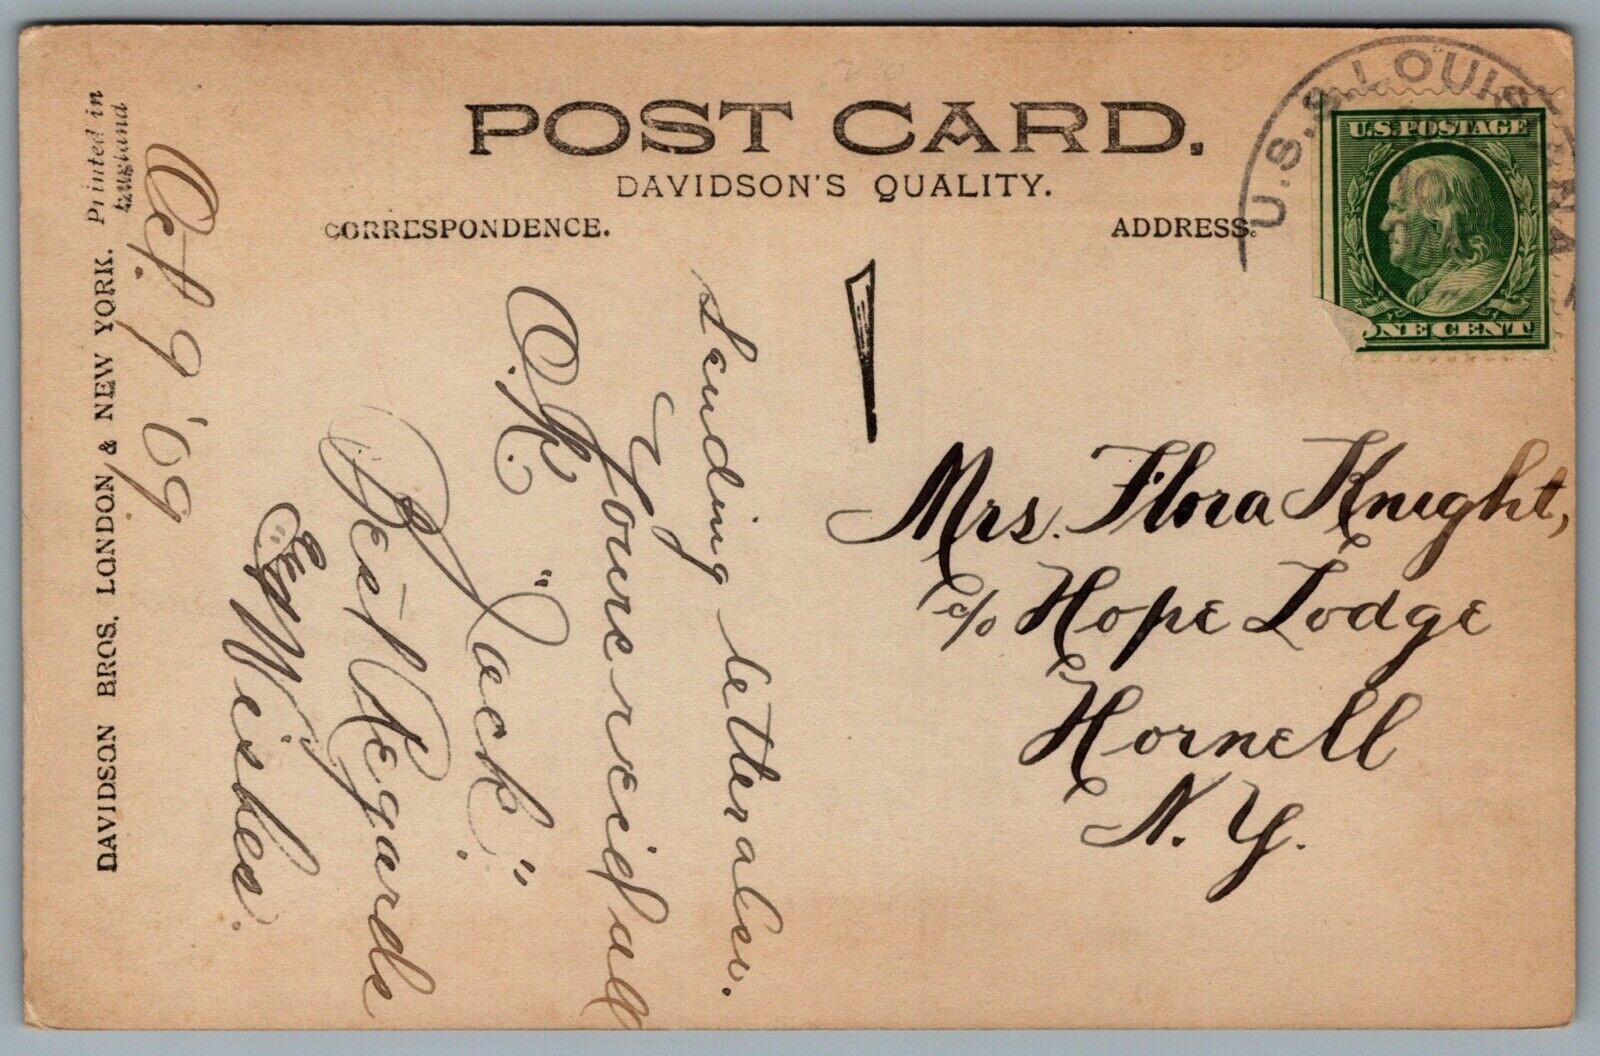 POST CARD.
DAVIDSON'S QUALITY.
CORRESPONDENCE.
ADDRESS.
U.S.S. LOUISIANA
U.S. POSTAGE
ONE CENT
Sending letter also.
Yours rec'd all
O.K. "Jack."
Best Regards
& Wishes.
Oct. 9 '09
Printed in
England
DAVIDSON BROS. LONDON & NEW YORK.
Mrs. Flora Knight,
c/o Hope Lodge
Hornell
N.Y.